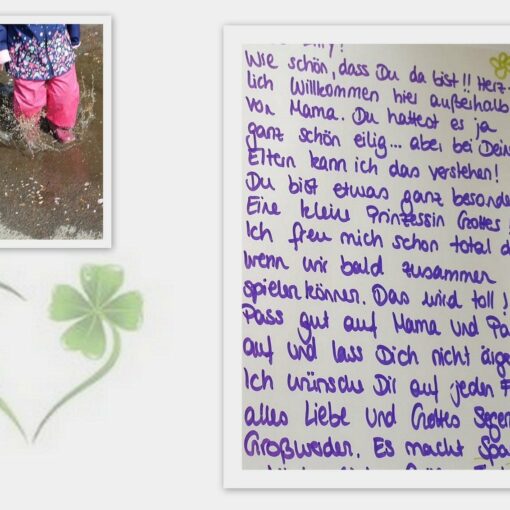 Wie schön, dass Du da bist!! Herz-
lich Willkommen hier außerhalb
von Mama. Du hattest es ja
ganz schön eilig... aber bei Dein
Eltern kann ich das verstehen!
Du bist etwas ganz besonde
Eine kleine Prinzessin Gottes!
Ich freu mich schon total d
wenn wir bald zusammen
spielen können. Das wird toll!
Pass gut auf Mama und Pa
auf und lass Dich nicht ärge
Ich wünsche Dir auf jeden F
alles Liebe und Gottes Segen
Großwerden. Es macht Spa